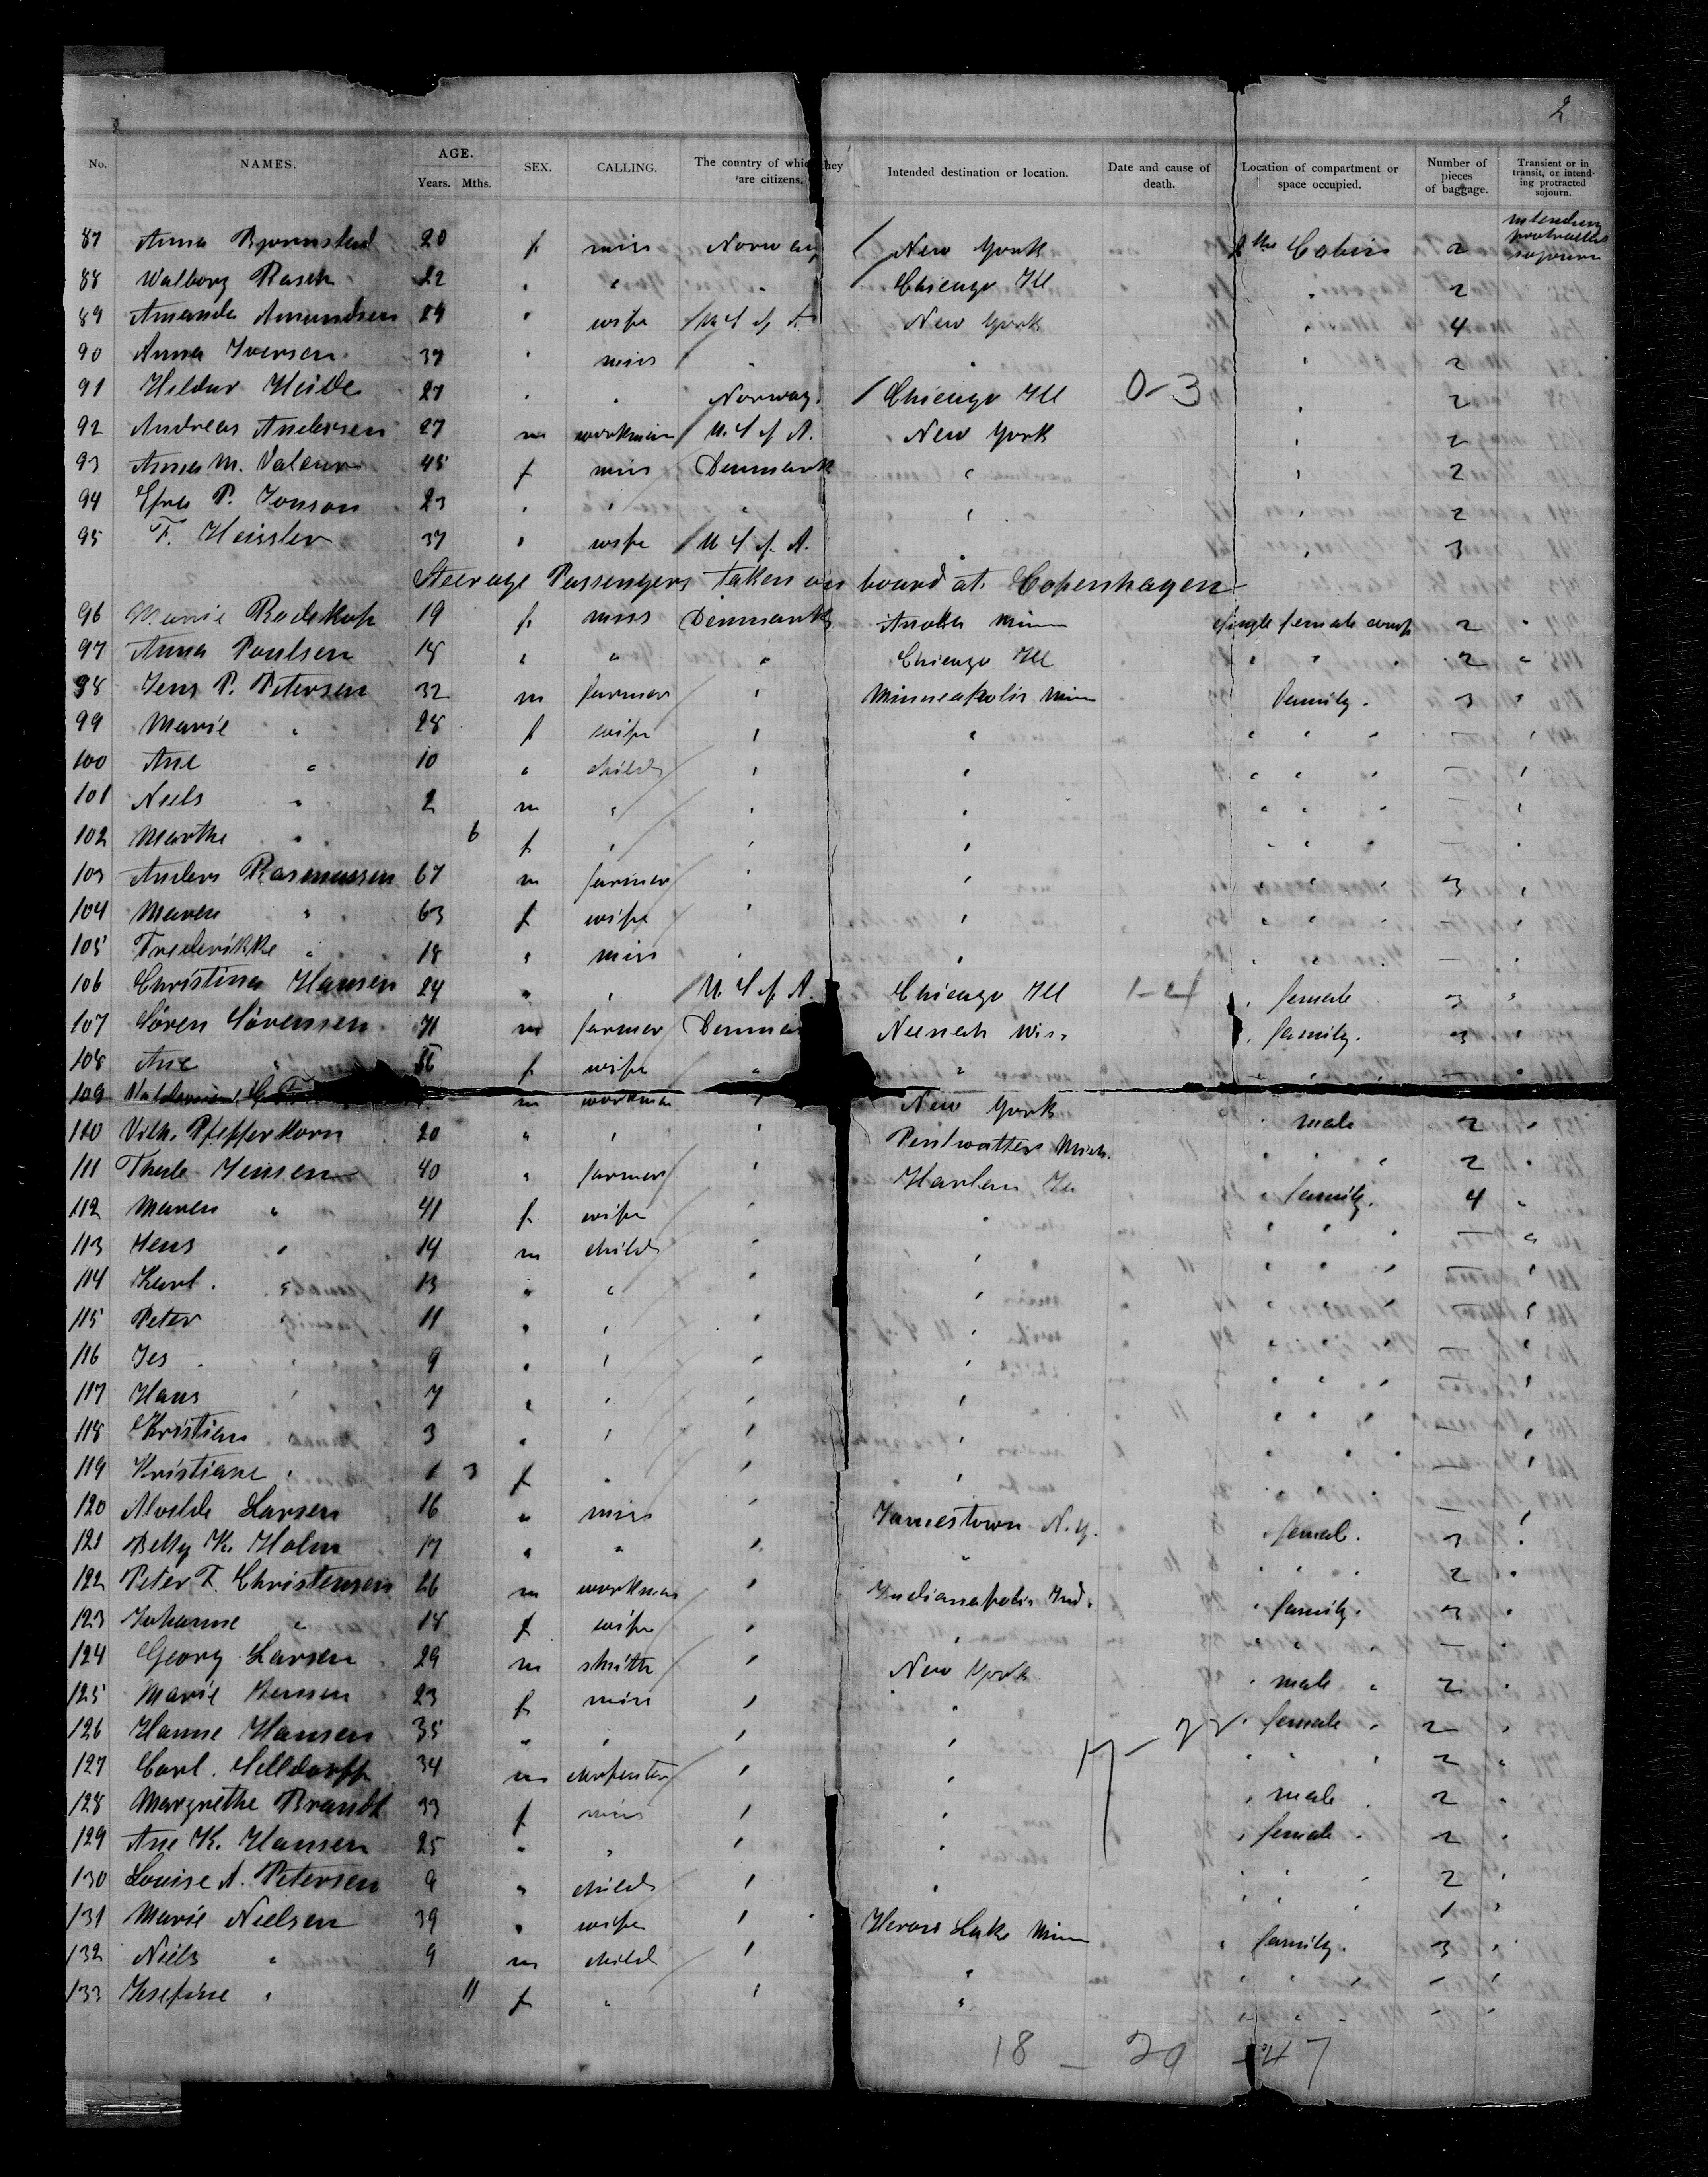 2
No. NAMES. AGE. Years. Mths. SEX. CALLING. The country of which they are citizens. Intended destination or location. Date and cause of death. Location of compartment or space occupied. Number of pieces of baggage. Transient or in transit, or intending protracted sojourn.
87 Anna Bjornstad 20 f miss Norway New York 2the Cabin 2 intending protracted sojourn
88 Walborg Rasch 22 " " " Chicago Ill " 2
89 Amanda Amundsen 29 " wife U S of A New York " 4
90 Anna Iversen 37 " miss " " " 2
91 Hildur Heide 27 " " Norway. Chicago Ill 0-3 " 2
92 Andreas Andersen 27 m workman U. S of A. New York " 2
93 Anna M. 45 f miss Denmark " " 2
94 P. Jonson 23 " " " " " 2
95 F. Heissler 37 " wife U S of A. " " 3
Steerage Passengers taken on board at Copenhagen
96 Marie Rodskop 19 f miss Denmark Anoka Minn single female comp 2 "
97 Anna Poulsen 18 " " " Chicago Ill " " " 2 "
98 Jens P. Petersen 32 m farmer " Minneapolis Minn family. 3 "
99 Marie " 28 f wife " " " " " — "
100 Ane " 10 " child " " " " " — "
101 Niels " 2 m " " " " " " — "
102 Marthe " 6 f " " " " " " — "
103 Anders Rasmussen 67 m farmer " " " " " 3 "
104 Maren " 63 f wife " " " " " — "
105 Frederikke " 18 " miss " " " " " — "
106 Christina Hansen 24 " " U. S of A. Chicago Ill 1-4 " female 3 "
107 Sören Sörensen 71 m farmer Denma Neenah Wis. " family. 3 "
108 Ane " f wife " " " " " — "
109 m workman " New York " male 2 "
110 Vilh. Pfefferkorn 20 " " " Pentwatter Mich. " " " 2 "
111 Jensen 40 " farmer " Harlan Ia " family. 4 "
112 Maren " 41 f wife " " " " " — "
113 Hens " 14 m child " " " " " — "
114 Karl. " 13 " " " " " " " — "
115 Peter " 11 " " " " " " " — "
116 Jes " 9 " " " " " " " — "
117 Hans " 7 " " " " " " " — "
118 Kristian " 3 " " " " " " " — "
119 Kristiane " 1 3 f " " " " " " — "
120 Alvilde Larsen 16 " miss " Jamestown N.Y. " female. 3 "
121 Betty K. Holm 17 " " " " " " 2 "
122 Peter F. Christensen 26 m workman " Indianapolis Ind. " family. 3 "
123 Johanne " 18 f wife " " " " " — "
124 Georg Larsen 29 m smith " New York " male " 2 "
125 Marie 23 f miss " " " female " 2 "
126 Hanne Hansen 35 " " " " 17-22 " " " 2 "
127 Carl. Selldorff 34 m carpenter " " " male " 2 "
128 Margrethe Brandt 33 f miss " " " female " 2 "
129 Ane K. Hansen 25 " " " " " " 2 "
130 Louise A. Petersen 9 " child " " " " " 1 "
131 Marie Nielsen 39 " wife " Heron Lake Minn " family. 3 "
132 Niels " 9 m child " " " " " — "
133 Josefine " 11 f " " " " " " — "
18 - 29 - 47